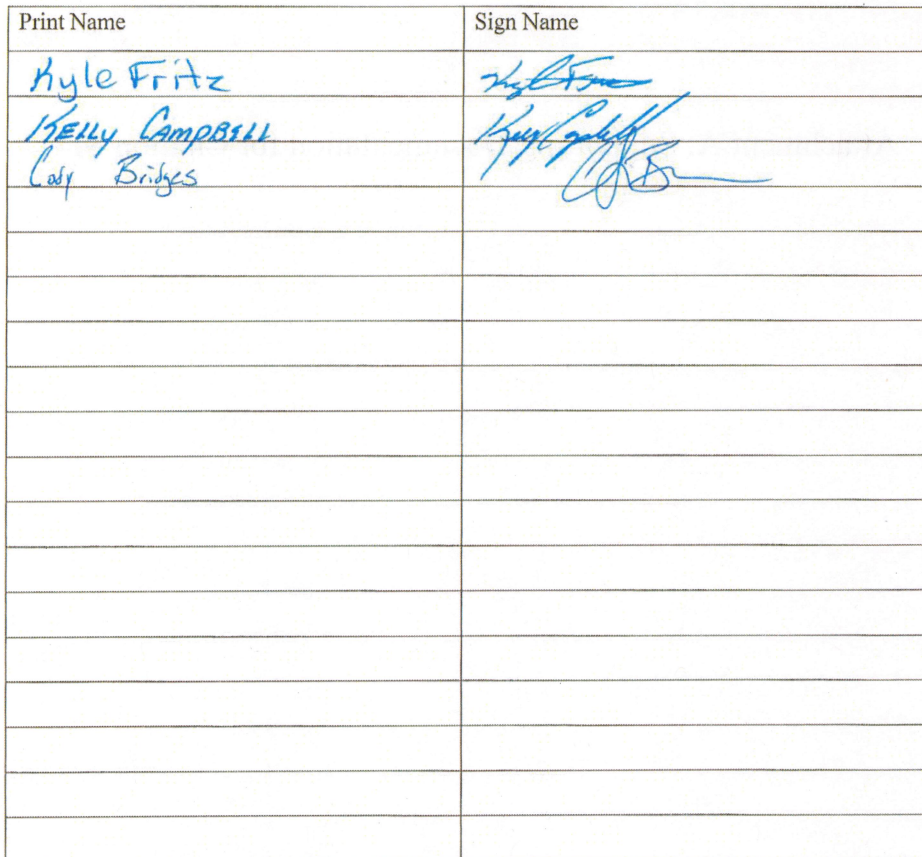 Print Name Sign Name
Kyle Fritz
KELLY CAMPBELL
Cody Bridges